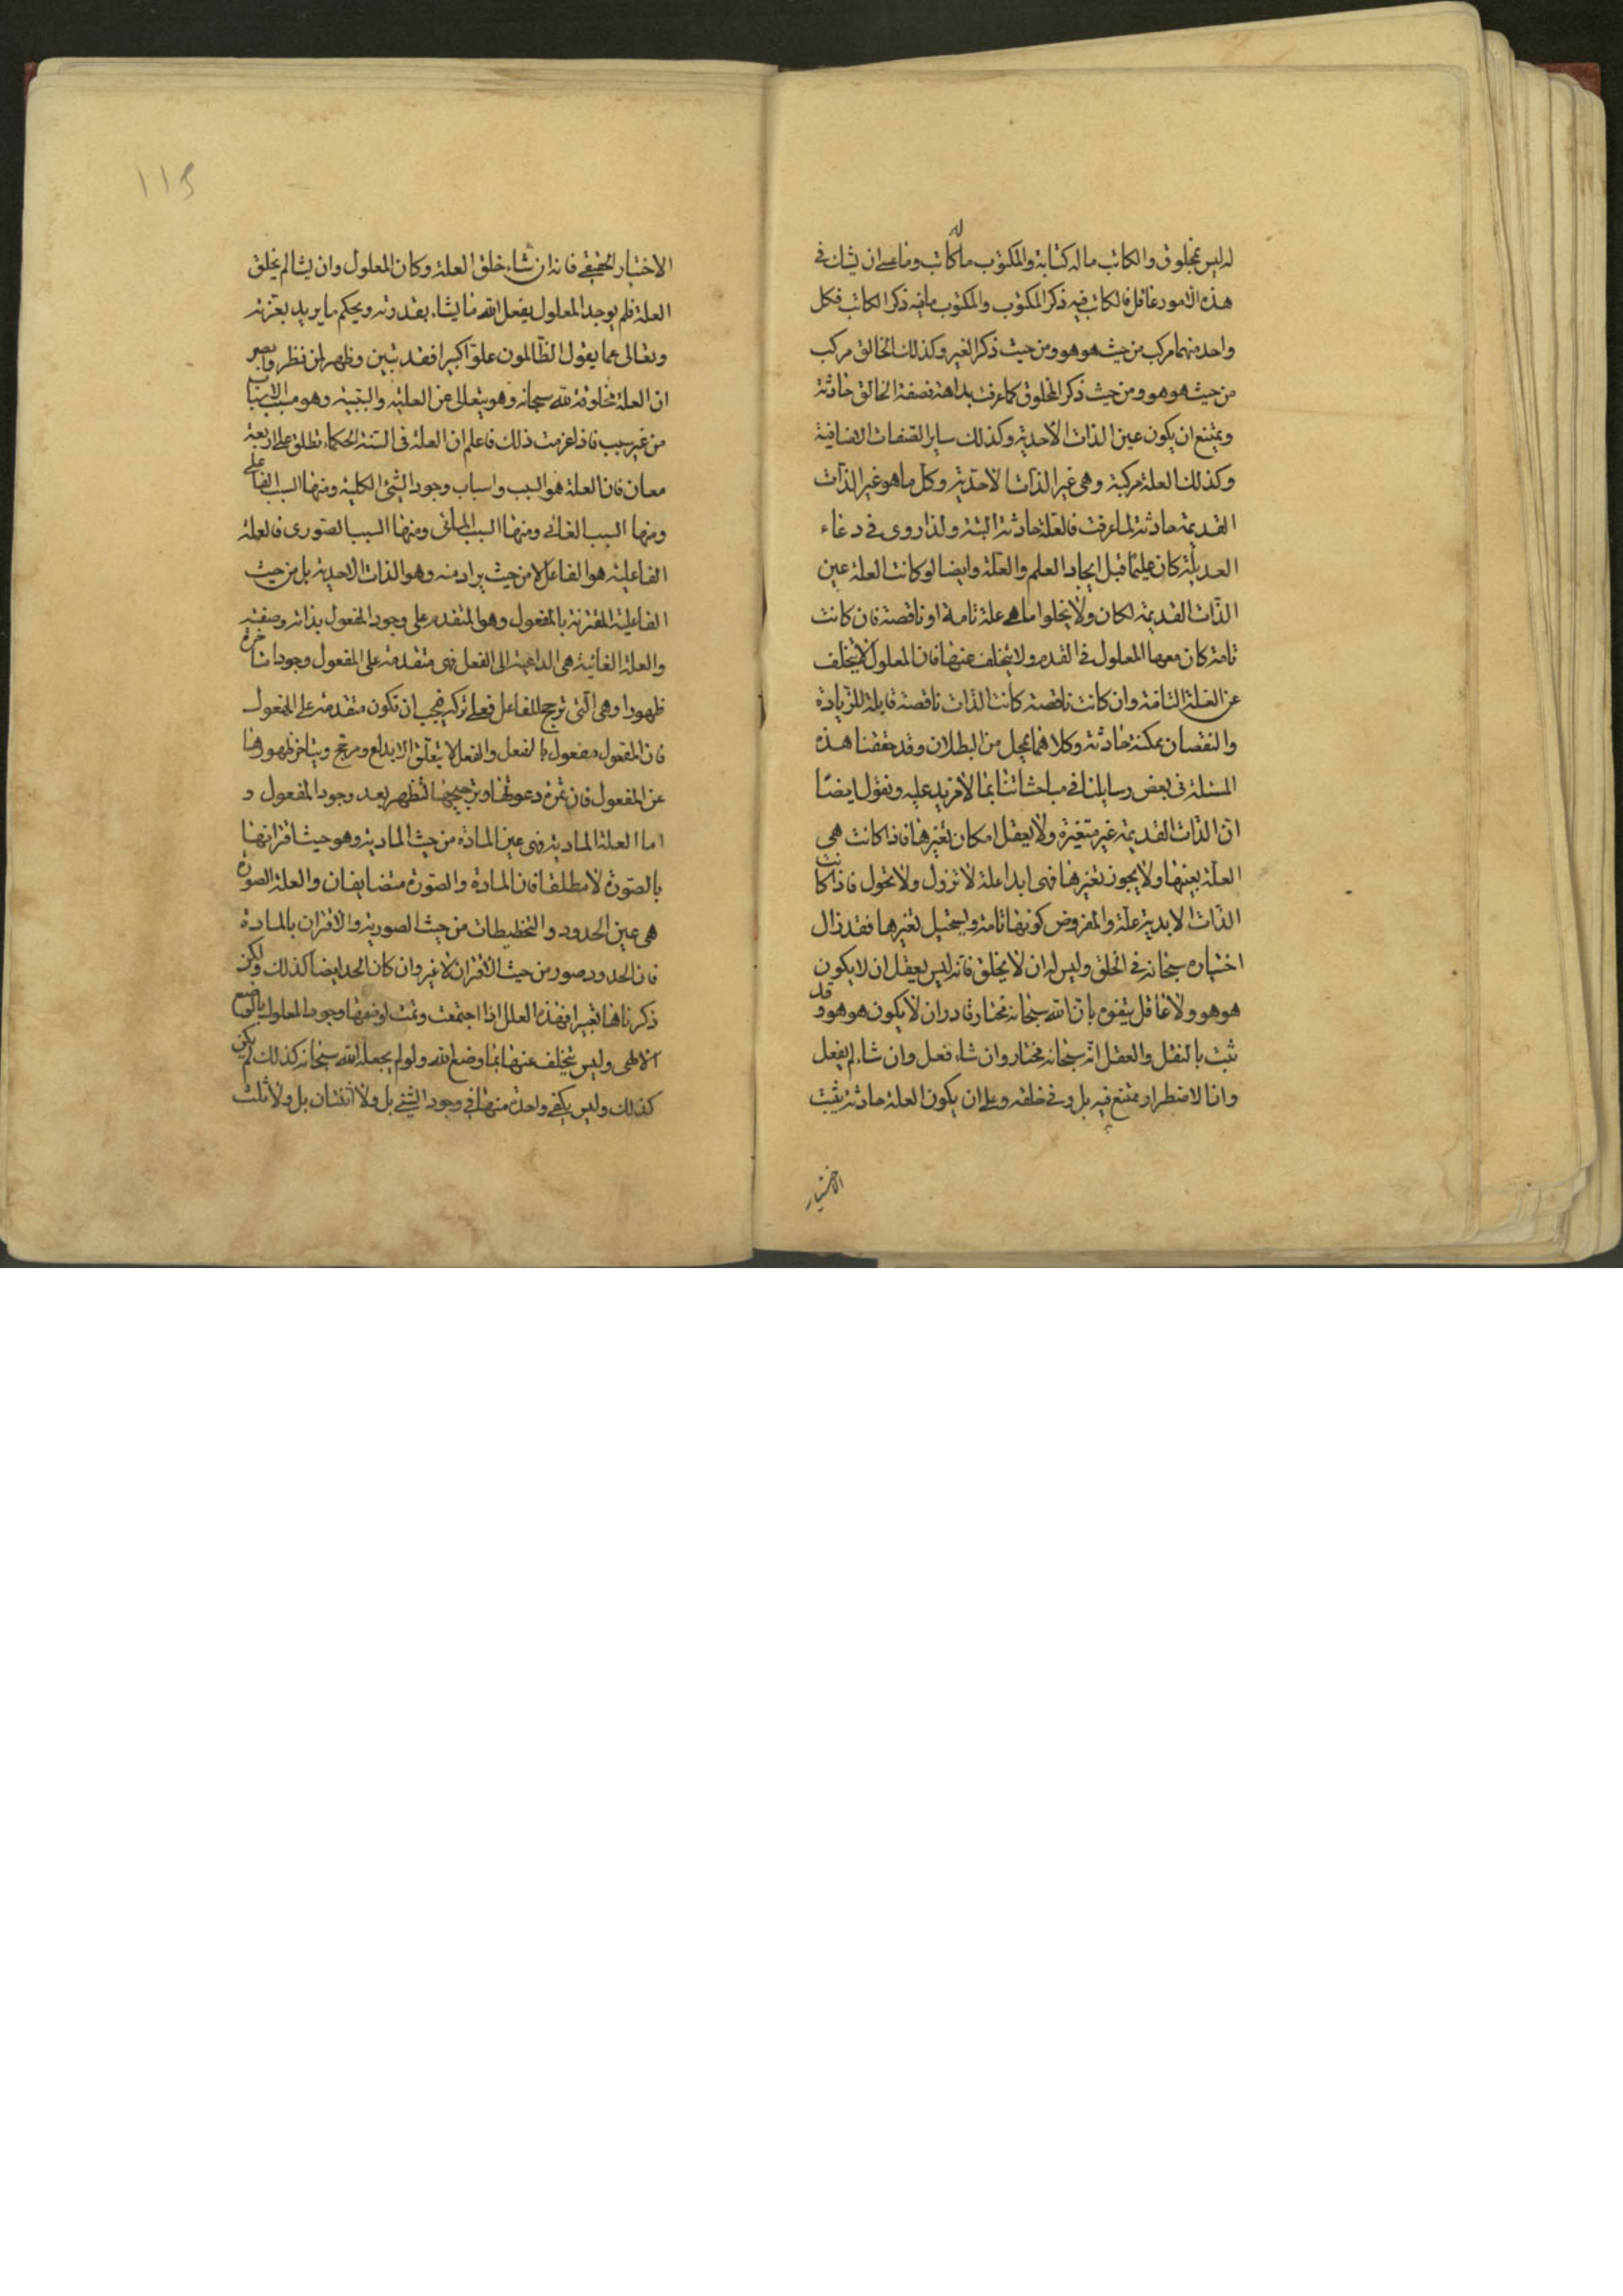 له ليس بمخلوق والكاتب ما له كتابة والمكتوب ما له كاتب وما عسى ان يشك في
هذه الامور عاقل فالكاتب فيه ذكر المكتوب والمكتوب ما فيه ذكر الكاتب فكل
واحد منهما مركب من حيث هو هو ومن حيث ذكر الغير وكذلك الخالق مركب
من حيث هو هو ومن حيث ذكر المخلوق كما عرفت بداهة فصفة الخالق حادثة
ويمتنع ان يكون عين الذات الاحدية وكذلك ساير الصفات الاضافية
وكذلك العلة مركبة وهي غير الذات الاحدية وكل ما هو غير الذات
القديمة حادثة لما عرفت فالعلة حادثة البتة ولذا روى في دعاء
العديلة كان عليما قبل ايجاد العلم والعلة وايضا لو كانت العلة عين
الذات القديمة لكان ولا يخلوا اما هي علة تامة او ناقصة فان كانت
تامة كان معها المعلول في القدم ولا يتخلف عنها فان المعلول لا يتخلف
عن العلة التامة وان كانت ناقصة كانت الذات ناقصة قابلة للزيادة
والنقصان ممكنة حادثة وكلاهما بمحل من البطلان وقد حققنا هذه
المسئلة في بعض رسايلنا في مباحثاتنا بما لا مزيد عليه ونقول ايضا
ان الذات القديمة غير متغيرة ولا يعقل امكان تغيرها فاذا كانت هي
العلة بعينها ولا يجوز تغيرها فهي ابدا علة لا تزول ولا تحول فاذا كانت
الذات الابدية علة والمفروض كونها تامة ويستحيل تغيرها فقد زال
اختياره سبحانه في الخلق وليس له ان لا يخلق فانه ليس يعقل ان لا يكون
هو هو ولا عاقل يتفوه بان الله سبحانه مختار قادر ان لا يكون هو هو وقد
ثبت بالنقل والعقل انه سبحانه مختار وان شاء فعل وان شاء لم يفعل
وانا لاضطرار ممتنع فيه بل وفي خلقه وعلى ان يكون العلة حادثة يثبت
الاختيار
١١٥
الاختيار الحقيقي فانه ان شاء خلق العلة وكان المعلول وان يشا لم يخلق
العلة فلم يوجد المعلول يفعل الله ما يشاء بقدرته ويحكم ما يريد بعزته
وتعالى عما يقول الظالمون علوا كبيرا فقد تبين وظهر لمن نظر وابصر
ان العلة مخلوقة لله سبحانه وهو يتعالى عن العلية والسببية وهو مسبب الاسباب
من غير سبب فاذا عرفت ذلك فاعلم ان العلة في السنة الحكماء تطلق على اربعة
معان فان العلة هو السبب واسباب وجود الشئ الكلية ومنها السبب الفاعلى
ومنها السبب الغائى ومنها السبب المادى ومنها السبب الصورى فالعلة
الفاعلية هو الفاعل لا من حيث يراد منه وهو الذات الاحدية بل من حيث
الفاعلية المقترنة بالمفعول وهو المتقدم على وجود المفعول بذاته وصفته
والعلة الغائية هي الداعية الى الفعل فهي متقدمة على المفعول وجودا متاخرة
ظهورا وهي التي ترجح للفاعل فعله تركه فيجب ان تكون متقدمة على المفعول
فان المفعول مفعول بالفعل والفعل لا يتعلق الا بداع ومرجح ويتاخر ظهورها
عن المفعول فان ثمرة دعوتها وترجيحها تظهر بعد وجود المفعول و
اما العلة المادية فهي عين المادة من حيث المادية وهو حيث اقترانها
بالصورة لا مطلقا فان المادة والصورة متضايفان والعلة الصورة
هي عين الحدود والتخطيطات من حيث الصورية والاقتران بالمادة
فان الحدود صور من حيث الاقتران لا غير وان كان الحد ايضا كذلك ولكن
ذكرناها تعبيرا فهذه العلل اذا اجتمعت وتمت وجود المعلول بالوضع
الالهى وليس يتخلف عنها بما وضع الله ولو لم يجعله الله سبحانه كذلك لم يكن
كذلك وليس يكفى واحدة منها في وجود الشئ بل ولا اثنتان بل ولا ثلث